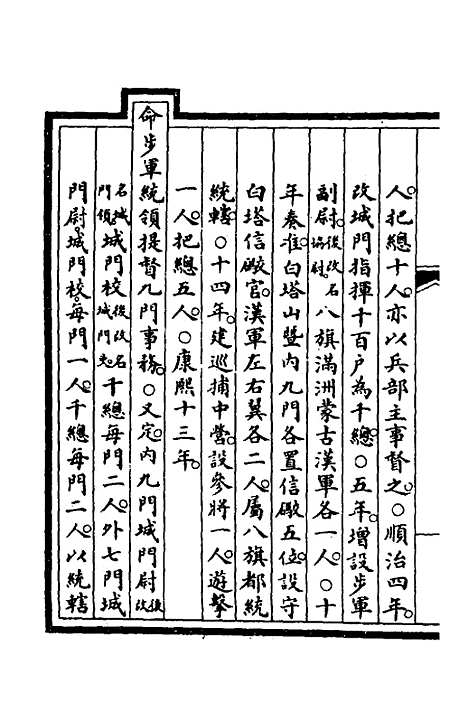 人。把總十人。亦以兵部主事督之。○順治四年。
改城門指揮十百戶為千總。○五年。增設步軍
副尉。後改名協尉。八旗滿洲蒙古漢軍各一人。○十
年奏准。白塔山暨內九門各置信礮五位。設守
白塔信礮官。漢軍左右翼各二人。屬八旗都統
統轄。○十四年。建巡捕中營。設參將一人。遊擊
一人。把總五人。○康熙十三年。
命步軍統領提督九門事務。○又定。內九門城門尉後改
名城門領。城門校後改名城門吏。千總每門二人。外七門城
門尉。城門校。每門一人。千總每門二人。以統轄